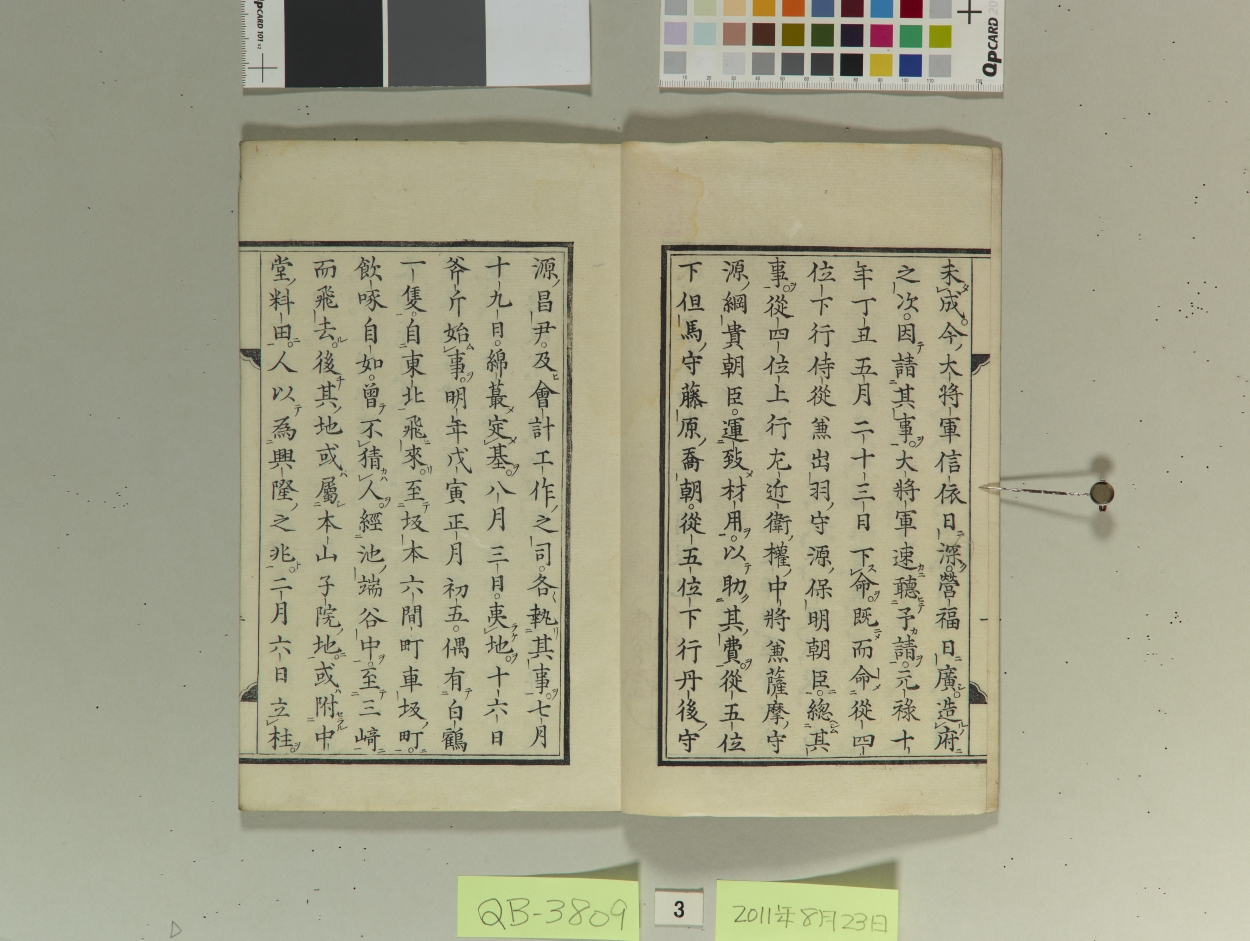 未成今大將軍信依日深營福日廣造府
之次因請其事大將軍速聽予請元祿十
年丁丑五月二十三日下命既而命從四
位下行侍從兼出羽守源保明朝臣總其
事從四位上行左近衛權中將兼薩摩守
源綱貴朝臣運致材用以助其費從五位
下但馬守藤原喬朝從五位下行丹後守
源昌尹及會計工作之司各執其事七月
十九日綿蕞定基八月三日夷地十六日
斧斤始事明年戊寅正月初五偶有白鶴
一隻自東北飛來至坂本六間町車坂町
飲啄自如曾不猜人經池端谷中至三﨑
而飛去後其地或屬本山子院地或附中
堂料田人以為興隆之兆二月六日立柱
QPCARD 101 v3
QPCARD 20
QB-3809
3
2011年8月23日